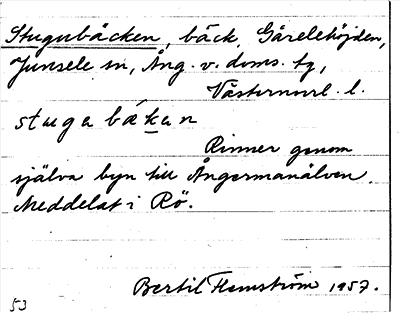 Stugubäcken, bäck, Gårelehöjden,
Junsele sn, Ång. v. doms. tg,
Västernorrl. l.
stugabækan
Rinner genom
själva byn till Ångermanälven.
Meddelat i Rö.
Bertil Flemström 1957.
53